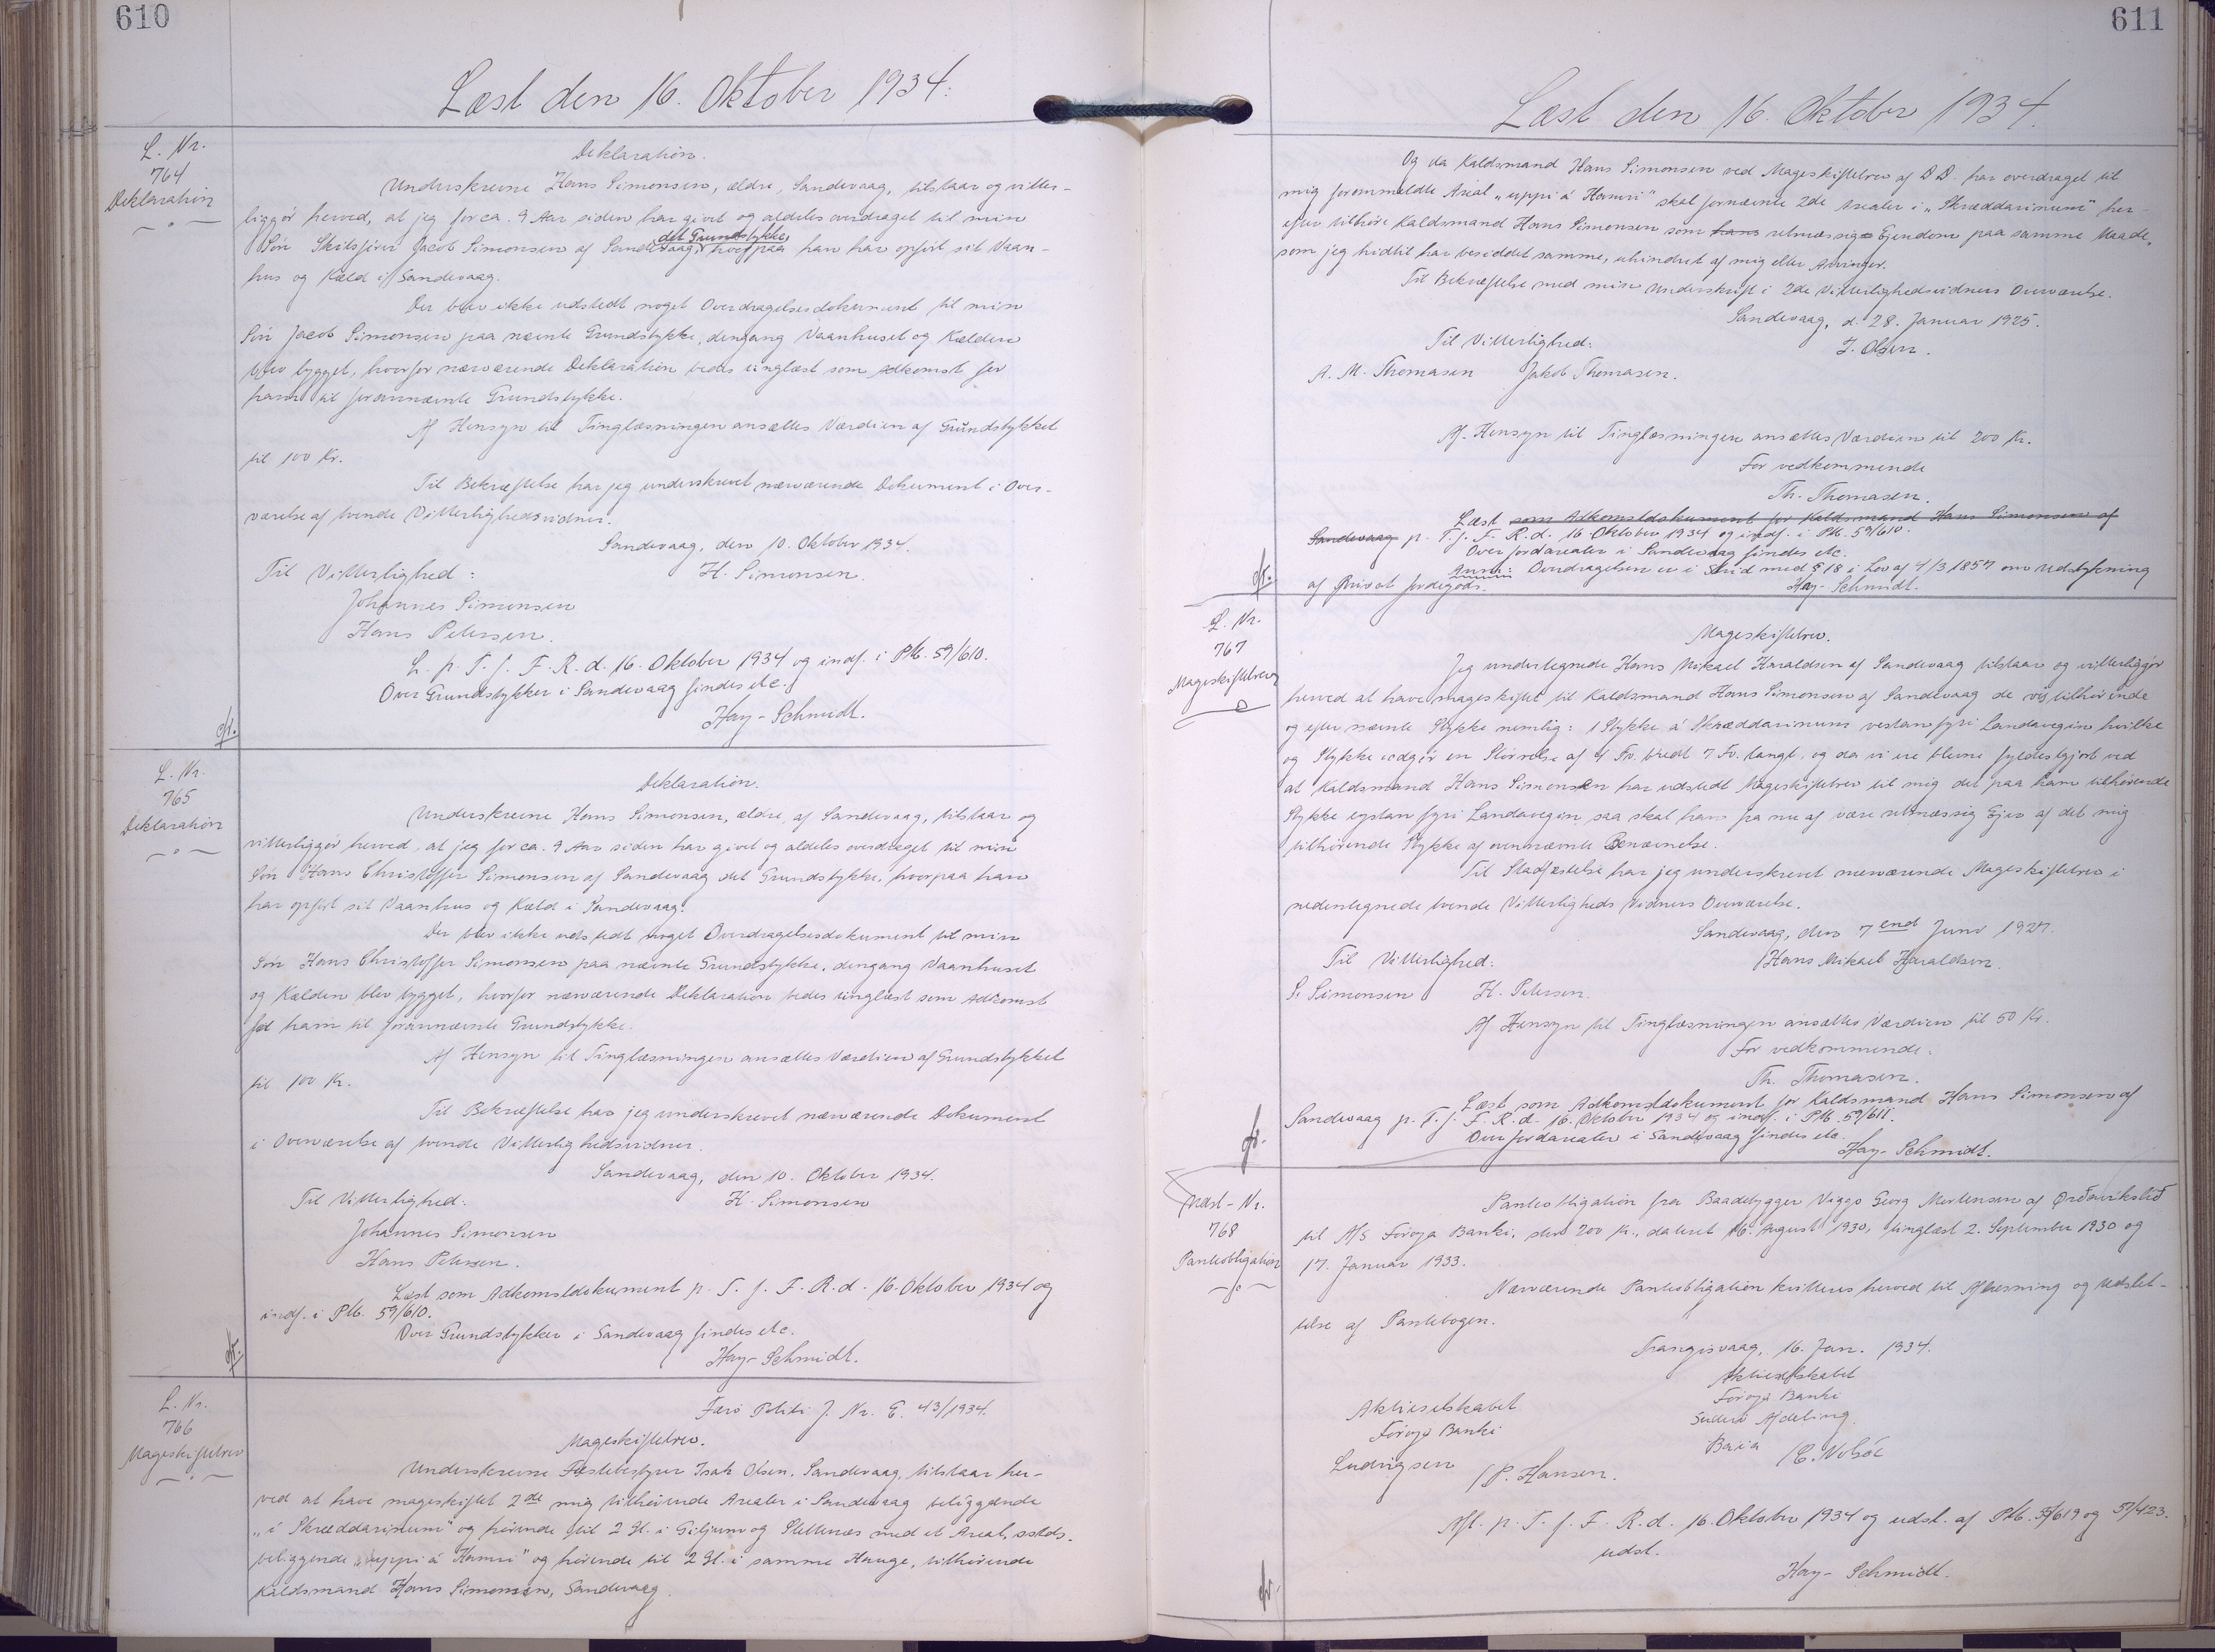 610
Læst den 16. Oktober 1934.
L. Nr.
764
Deklaration
Deklaration.
Underskrevne Hans Simonsen, ældre, Sandevaag, tilstaar og vitter-
liggör herved, at jeg for ca. 9 Aar siden har givet og aldeles overdraget til min
Sön Skibsförer Jacob Simonsen af Sandevaag det Grundstykke hvorpaa han har opfört sit Vaan-
hus og Kæld i Sandevaag.
Der blev ikke udstedt noget Overdragelsesdokument til min
Sön Jacob Simonsen paa nævnte Grundstykke, dengang Vaanhuset og Kælden
blev bygget, hvorfor nærværende Deklaration bedes tinglæst som Adkomst for
ham til forannævnte Grundstykke.
Af Hensyn til Tinglæsningen ansættes Værdien af Grundstykket
til 100 Kr.
Til Bekræftelse har jeg underskrevet nærværende Dokument i Over-
værelse af tvende Vitterlighedsvidner.
Sandevaag, den 10. Oktober 1934.
Til Vitterlighed: H. Simonsen.
Johannes Simonsen
Hans Petersen.
L. p. T. f. F. R. d. 16. Oktober 1934 og indf. i Ptb. 59/610.
Over Grundstykker i Sandevaag findes etc.
Hay-Schmidt.
L. Nr.
765
Deklaration
Deklaration.
Underskrevne Hans Simonsen, ældre, af Sandevaag, tilstaar og
vitterliggör herved, at jeg for ca. 9 Aar siden har givet og aldeles overdraget til min
Sön Hans Christoffer Simonsen af Sandevaag det Grundstykke, hvorpaa han
har opfört sit Vaanhus og Kæld i Sandevaag.
Der blev ikke udstedt noget Overdragelsesdokument til min
Sön Hans Christoffer Simonsen paa nævnte Grundstykke, dengang Vaanhuset
og Kælden blev bygget, hvorfor nærværende Deklaration bedes tinglæst som Adkomst
for ham til forannævnte Grundstykke.
Af Hensyn til Tinglæsningen ansættes Værdien af Grundstykket
til 100 Kr.
Til Bekræftelse har jeg underskrevet nærværende Dokument
i Overværelse af tvende Vitterlighedsvidner.
Sandevaag, den 10. Oktober 1934.
Til Vitterlighed: H. Simonsen
Johannes Simonsen
Hans Petersen.
Læst som Adkomstdokument p. T. f. F. R. d. 16. Oktober 1934 og
indf. i Ptb. 59/610.
Over Grundstykker i Sandevaag findes etc.
Hay-Schmidt.
L. Nr.
766
Mageskiftebrev
Færö Politi J. Nr. E. 43/1934.
Mageskiftebrev.
Underskrevne Fæstebestyrer Isak Olsen, Sandevaag, tilstaar her-
ved at have mageskiftet 2de mig tilhörende Arealer i Sandevaag beliggende
"i Skræddarinum" og hörende til 2 Gl. i Giljum og Slettenæs med et Areal, sstds.
beliggende "uppi á Hamri" og hörende til 2 Gl. i samme Hauge, tilhörende
Kaldsmand Hans Simonsen, Sandevaag.
611
Læst den 16. Oktober 1934.
Og da Kaldsmand Hans Simonsen ved Mageskiftebrev af D.D. har overdraget til
mig foranmeldte Areal "uppi á Hamri" skal fornævnte 2de Arealer i "Skræddarinum" her-
efter tilhöre Kaldsmand Hans Simonsen som hans retmæssige Ejendom paa samme Maade,
som jeg hidtil har besiddet samme, uhindret af mig eller Arvinger.
Til Bekræftelse med min Underskrift i 2de Vitterlighedsvidners Overværelse.
Sandevaag, d. 28. Januar 1925.
Til Vitterlighed: I. Olsen.
A. M. Thomasen Jakob Thomasen.
Af Hensyn til Tinglæsningen ansættes Værdien til 200 Kr.
For vedkommende
Th. Thomasen.
Læst som Adkomstdokument for Kaldsmand Hans Simonsen af
Sandevaag p. T. f. F. R. d. 16. Oktober 1934 og indf. i Ptb. 59/610.
Over Jordarealer i Sandevaag findes etc.
Anm: Overdragelsen er i Strid med § 18 i Lov af 4/3 1857 om Udstykning
af Privat Jordegods. Hay-Schmidt.
L. Nr.
767
Mageskiftebrev
Mageskiftebrev.
Jeg undertegnede Hans Mikael Haraldsen af Sandevaag tilstaar og vitterliggör
herved at have mageskiftet til Kaldsmand Hans Simonsen af Sandevaag de os tilhörende
og efter nævnte Stykke nemlig: 1 Stykke á Skræddarinum vestan fyri Landavegin hvilke
og Stykke udgör en Störrelse af 4 Fv. bredt 7 Fv. langt, og da vi ere blevne fyldestgjort ved
at Kaldsmand Hans Simonsen har udstedt Mageskiftebrev til mig det paa ham tilhörende
Stykke eystan fyri Landavegin saa skal han fra nu af være retmæssig Ejer af det mig
tilhörende Stykke af ovennævnte Benævnelse.
Til Stadfæstelse har jeg underskrevet nærværende Mageskiftebrev i
nedentegnede tvende Vitterligheds Vidners Overværelse.
Sandevaag, den 7end Juni 1927.
Til Vitterlighed: Hans Mikael Haraldsen.
S. Simonsen H. Petersen.
Af Hensyn til Tinglæsningen ansættes Værdien til 50 Kr.
For vedkommende:
Th. Thomasen.
Læst som Adkomstdokument for Kaldsmand Hans Simonsen af
Sandevaag p. T. f. F. R. d. 16. Oktober 1934 og indf. i Ptb. 59/611.
Over Jordarealer i Sandevaag findes etc.
Hay-Schmidt.
Læst-Nr.
768
Panteobligation
Panteobligation fra Baadebygger Viggo Georg Mortensen af Ørðavikslið
til A/S Föroya Banki, stor 200 Kr., dateret 16. August 1930, tinglæst 2. September 1930 og
17. Januar 1933.
Nærværende Panteobligation kvitteres herved til Aflæsning og Udslet-
telse af Pantebogen.
Trangisvaag, 16. Jan. 1934.
Aktieselskabet
Föroya Banki
Suderö Afdeling.
Aktieselskabet
Föroya Banki
Ludvigsen /P. Hansen.
Afl. p. T. f. F. R. d. 16. Oktober 1934 og udsl. af Ptb. 55/619 og 57/423.
udsl.
Hay-Schmidt.